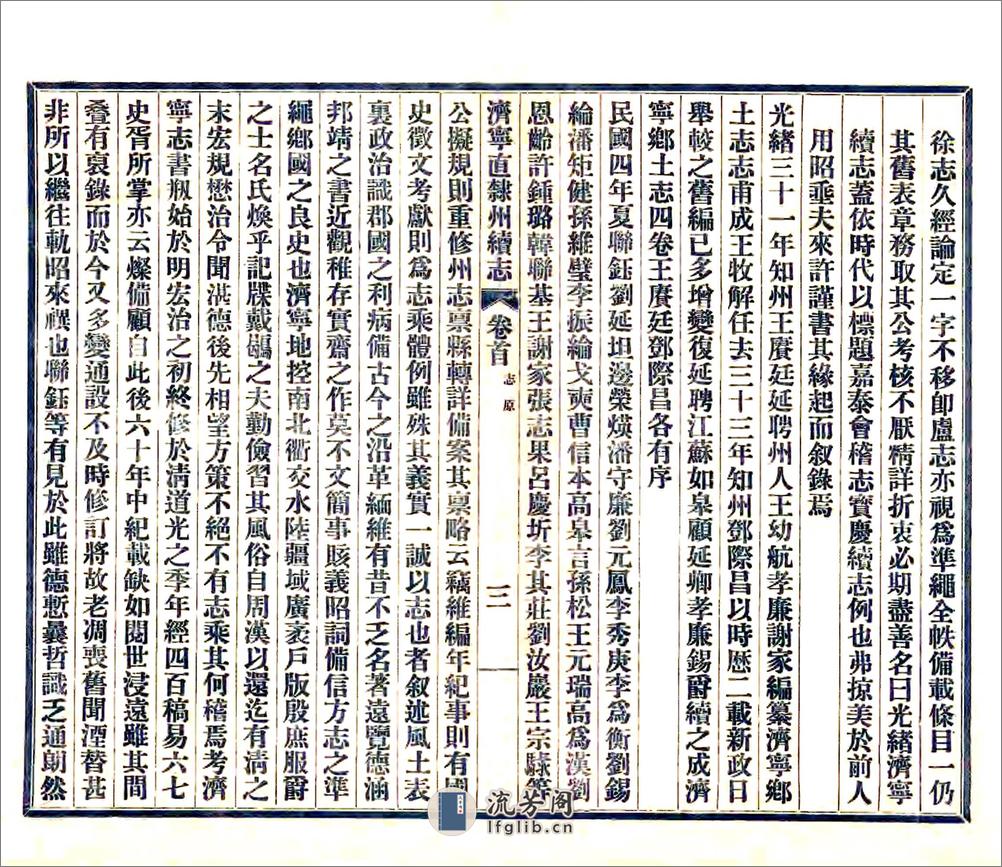 徐志久經論定一字不移卽盧志亦視爲準繩全帙備載條目一仍
其舊表章務取其公考核不厭精詳折衷必期盡善名曰光緒濟寧
續志蓋依時代以標題嘉泰會稽志寶慶續志例也弗掠美於前人
用昭垂夫來許謹書其緣起而叙錄焉
光緒三十一年知州王賡廷延聘州人王幼航孝廉謝家編纂濟寧鄉
土志志甫成王牧解任去三十三年知州鄧際昌以時歷二載新政日
舉較之舊編已多增變復延聘江蘇如皋顧延卿孝廉錫爵續之成濟
寧鄉土志四卷王賡廷鄧際昌各有序
民國四年夏聯鈺劉延坦邊榮煐潘守廉劉元鳳李秀庚李爲衡劉錫
綸潘矩健孫維璧李振綸戈奭曹信本高皋言孫松王元瑞高爲漢劉
恩齡許鍾璐韓聯基王謝家張志果呂慶圻李其莊劉汝巖王宗騄等
濟寧直隸州續志 卷首 志原 三
公擬規則重修州志稟縣轉詳備案其稟略云竊維編年紀事則有國
史徵文考獻則爲志乘體例雖殊其義實一誠以志也者叙述風土表
裏政治識郡國之利病備古今之沿革緬維有昔不乏名著遠覽德涵
邦靖之書近觀稚存實齋之作莫不文簡事賅義昭詞備信方志之準
繩鄉國之良史也濟寧地控南北衢交水陸疆域廣袤戶版殷庶服爵
之士名氏煥乎記牒戴鶡之夫勤儉習其風俗自周漢以還迄有淸之
末宏規懋治令聞湛德後先相望方策不絕不有志乘其何稽焉考濟
寧志書瓶始於明宏治之初終修於淸道光之季年經四百稿易六七
史胥所掌亦云燦備顧自此後六十年中紀載缺如閱世浸遠雖其間
叠有裒錄而於今又多變通設不及時修訂將故老凋喪舊聞湮替甚
非所以繼往軌昭來禩也聯鈺等有見於此雖德慙曩哲識乏通朗然
流芳阁
lfglib.cn